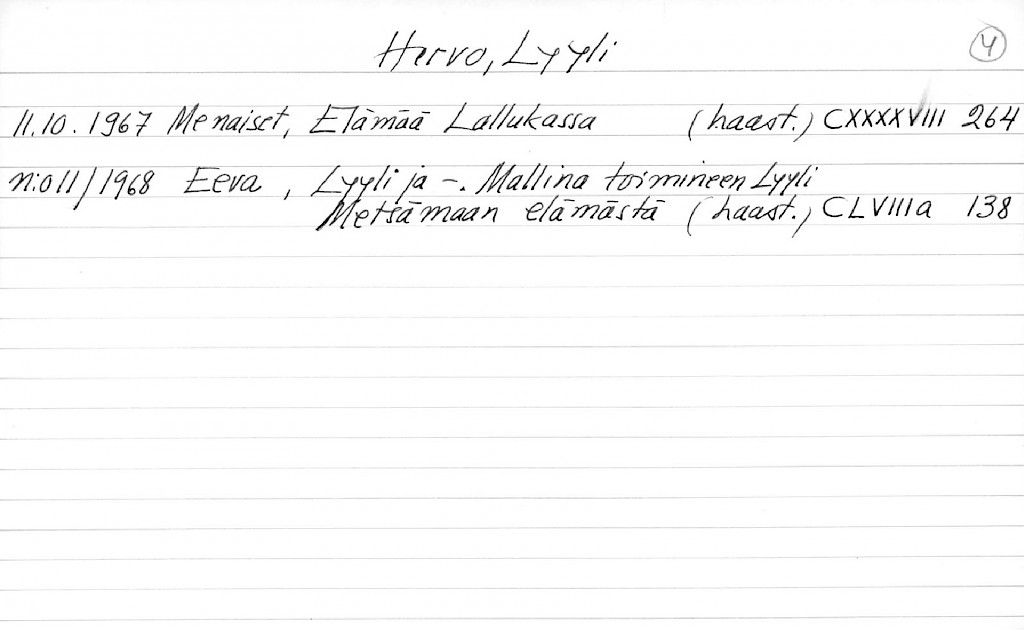 Hervo, Lyyli 4
11.10.1967 Me naiset, Elämää Lallukassa (haast.) CXXXXVIII 264
n:o 11/1968 Eeva, Lyyli ja -. Mallina toimineen Lyyli
Metsämaan elämästä (haast.) CLVIIIa 138